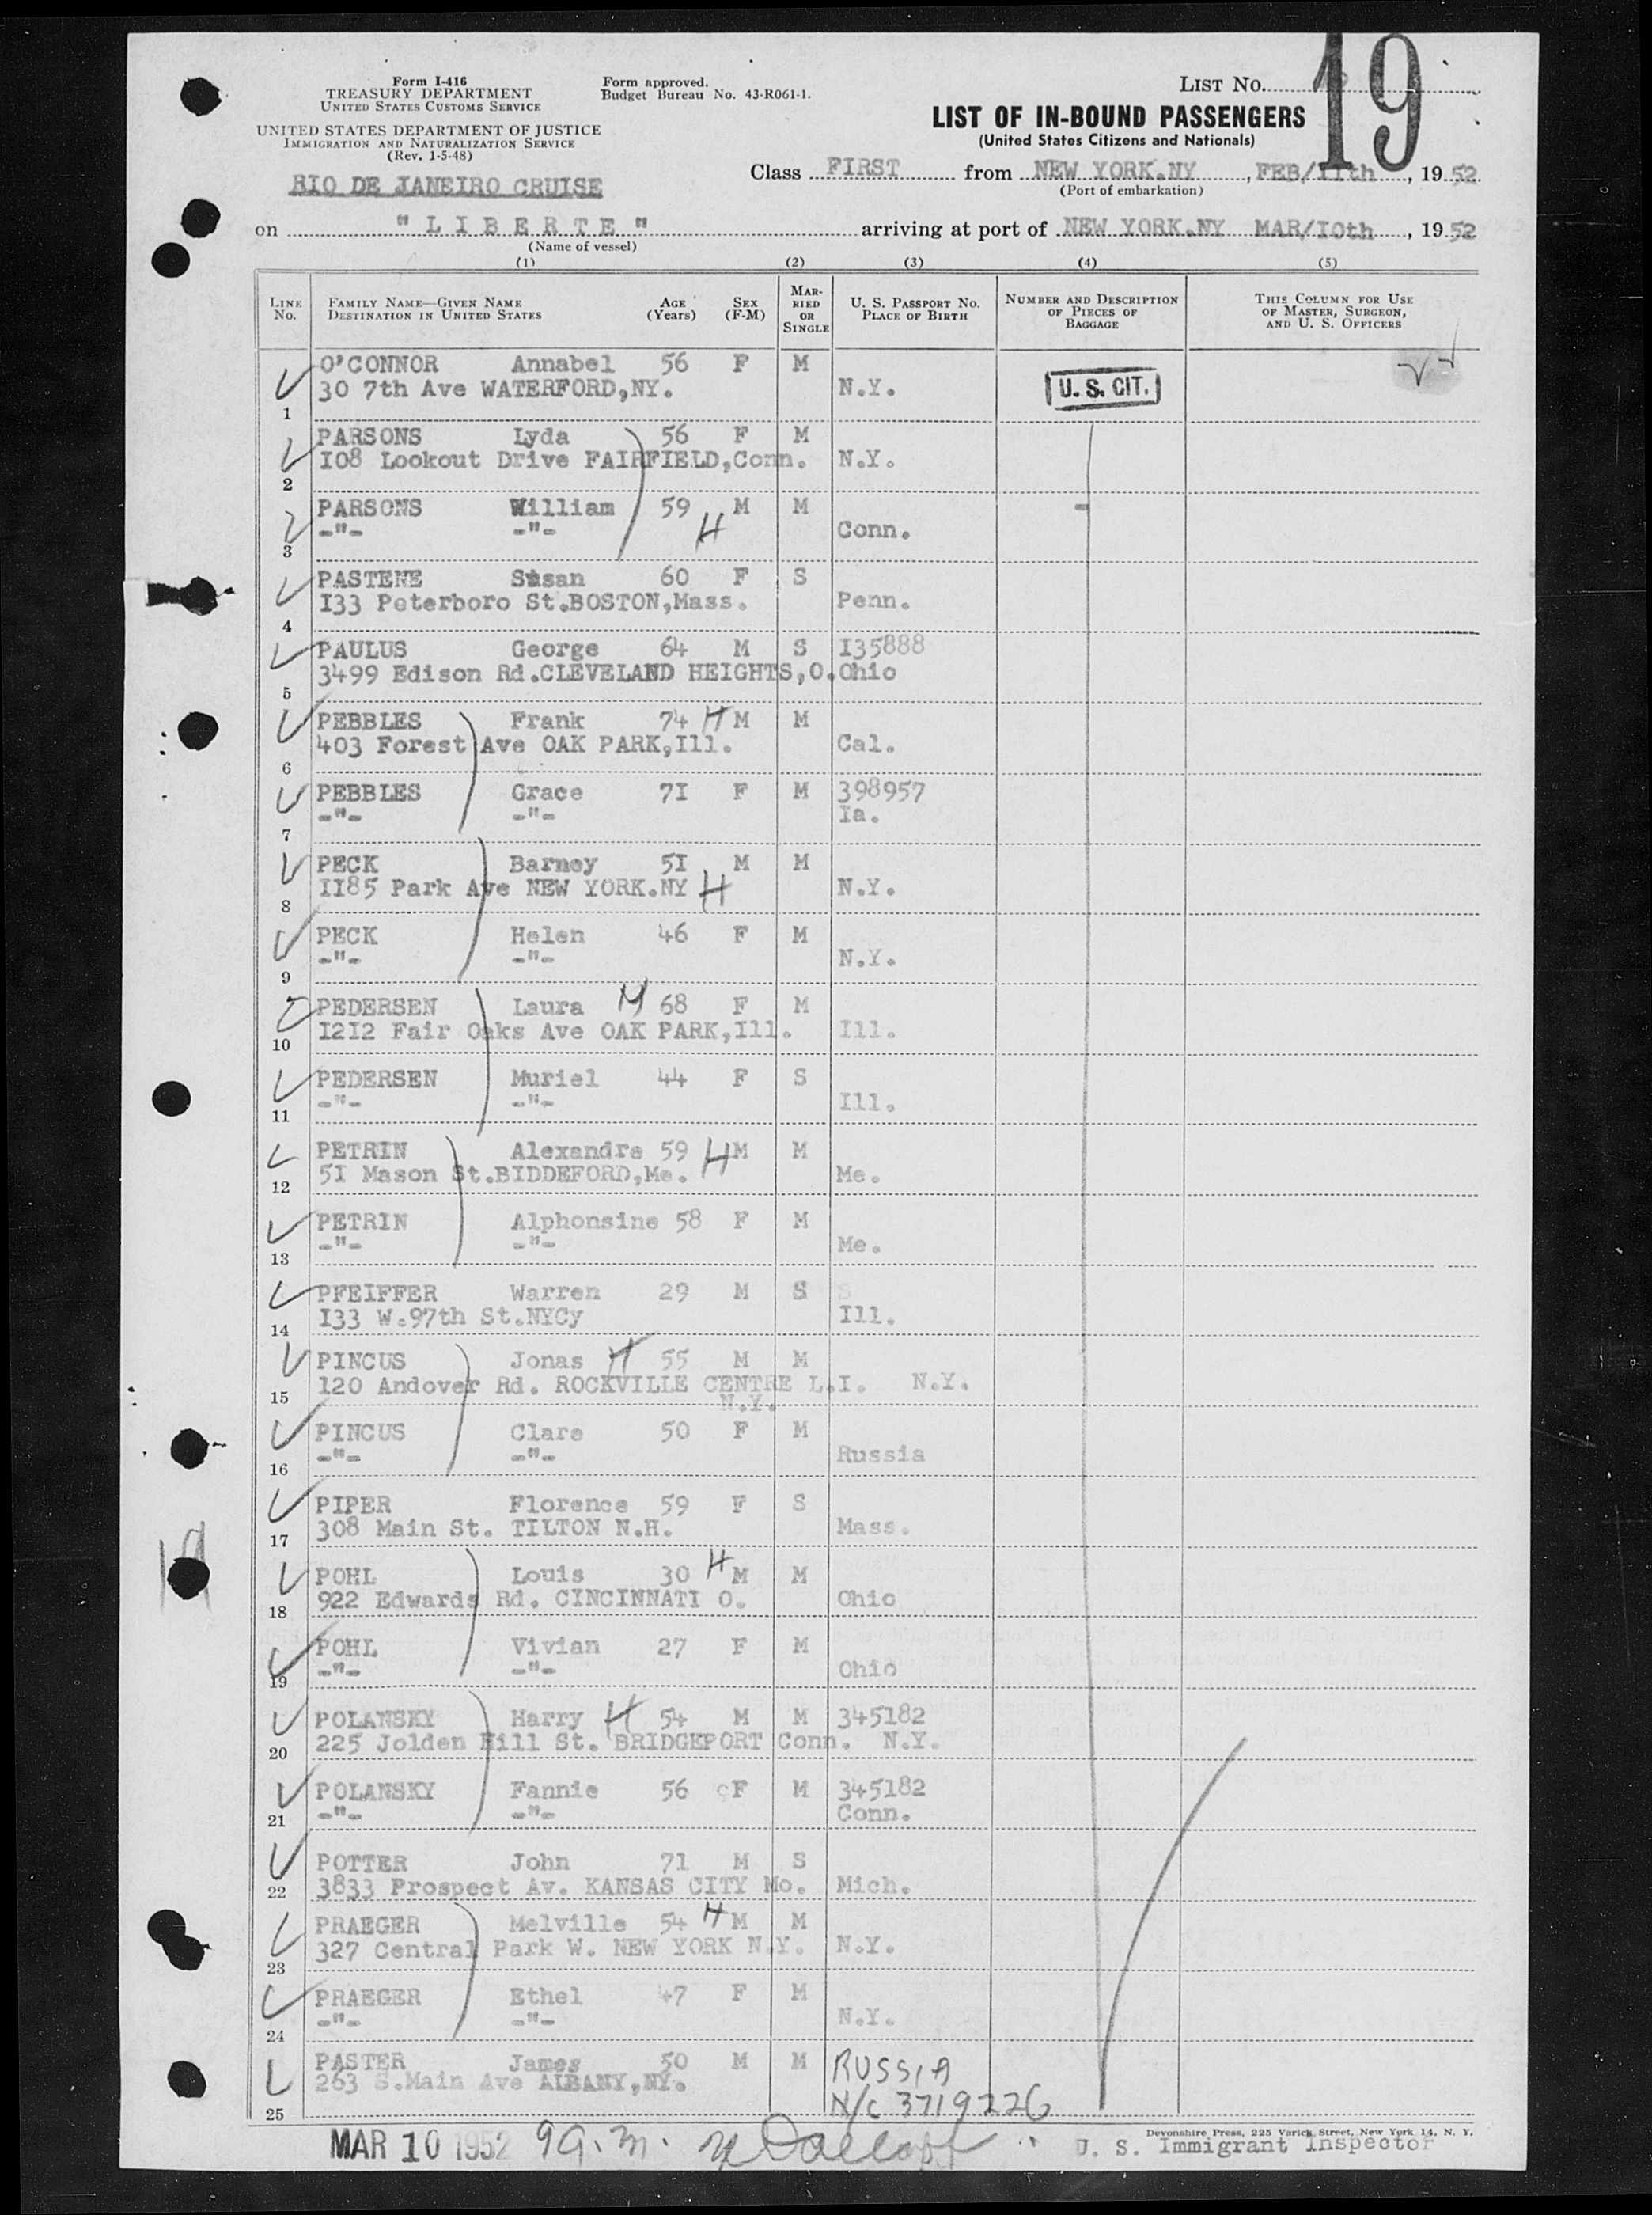 Form I-416
TREASURY DEPARTMENT
UNITED STATES CUSTOMS SERVICE
UNITED STATES DEPARTMENT OF JUSTICE
IMMIGRATION AND NATURALIZATION SERVICE
(Rev. 1-5-48)
Form approved.
Budget Bureau No. 43-R061-1.
LIST No.
19
LIST OF IN-BOUND PASSENGERS
(United States Citizens and Nationals)
RIO DE JANEIRO CRUISE
Class FIRST from NEW YORK.NY , FEB/11th , 19 52
(Port of embarkation)
on " L I B E R T E " arriving at port of NEW YORK.NY MAR/IOth , 19 52
(Name of vessel)
(1) (2) (3) (4) (5)
LINE No. FAMILY NAME—GIVEN NAME DESTINATION IN UNITED STATES AGE (Years) SEX (F-M) MARRIED OR SINGLE U. S. PASSPORT No. PLACE OF BIRTH NUMBER AND DESCRIPTION OF PIECES OF BAGGAGE THIS COLUMN FOR USE OF MASTER, SURGEON, AND U. S. OFFICERS
O'CONNOR Annabel 56 F M
30 7th Ave WATERFORD,NY. N.Y. U. S. CIT.
1
PARSONS Lyda 56 F M
I08 Lookout Drive FAIRFIELD,Conn. N.Y.
2
PARSONS William 59 H M M
-"- -"- Conn.
3
PASTENE Susan 60 F S
I33 Peterboro St.BOSTON,Mass. Penn.
4
PAULUS George 64 M S I35888
3499 Edison Rd.CLEVELAND HEIGHTS,O. Ohio
5
PEBBLES Frank 74 H M M
403 Forest Ave OAK PARK,Ill. Cal.
6
PEBBLES Grace 7I F M 398957
-"- -"- Ia.
7
PECK Barney 5I M M
II85 Park Ave NEW YORK.NY H N.Y.
8
PECK Helen 46 F M
-"- -"- N.Y.
9
PEDERSEN Laura M 68 F M
I2I2 Fair Oaks Ave OAK PARK,Ill. Ill.
10
PEDERSEN Muriel 44 F S
-"- -"- Ill.
11
PETRIN Alexandre 59 H M M
5I Mason St.BIDDEFORD,Me. Me.
12
PETRIN Alphonsine 58 F M
-"- -"- Me.
13
PFEIFFER Warren 29 M S S
I33 W.97th St.NYCy Ill.
14
PINCUS Jonas H 55 M M
120 Andover Rd. ROCKVILLE CENTRE L.I. N.Y.
N.Y.
15
PINCUS Clare 50 F M
-"- -"- Russia
16
PIPER Florence 59 F S
308 Main St. TILTON N.H. Mass.
17
POHL Louis 30 H M M
922 Edwards Rd. CINCINNATI O. Ohio
18
POHL Vivian 27 F M
-"- -"- Ohio
19
POLANSKY Harry H 54 M M 345182
225 Jolden Hill St. BRIDGEPORT Conn. N.Y.
20
POLANSKY Fannie 56 F M 345182
-"- -"- Conn.
21
POTTER John 71 M S
3833 Prospect Av. KANSAS CITY Mo. Mich.
22
PRAEGER Melville 54 H M M
327 Central Park W. NEW YORK N.Y. N.Y.
23
PRAEGER Ethel 47 F M
-"- -"- N.Y.
24
PASTER James 50 M M RUSSIA
263 S.Main Ave ALBANY,NY. N/C 3719226
25
Devonshire Press, 225 Varick Street, New York 14, N. Y.
MAR 10 1952 9 a.m. U. S. Immigrant Inspector
19